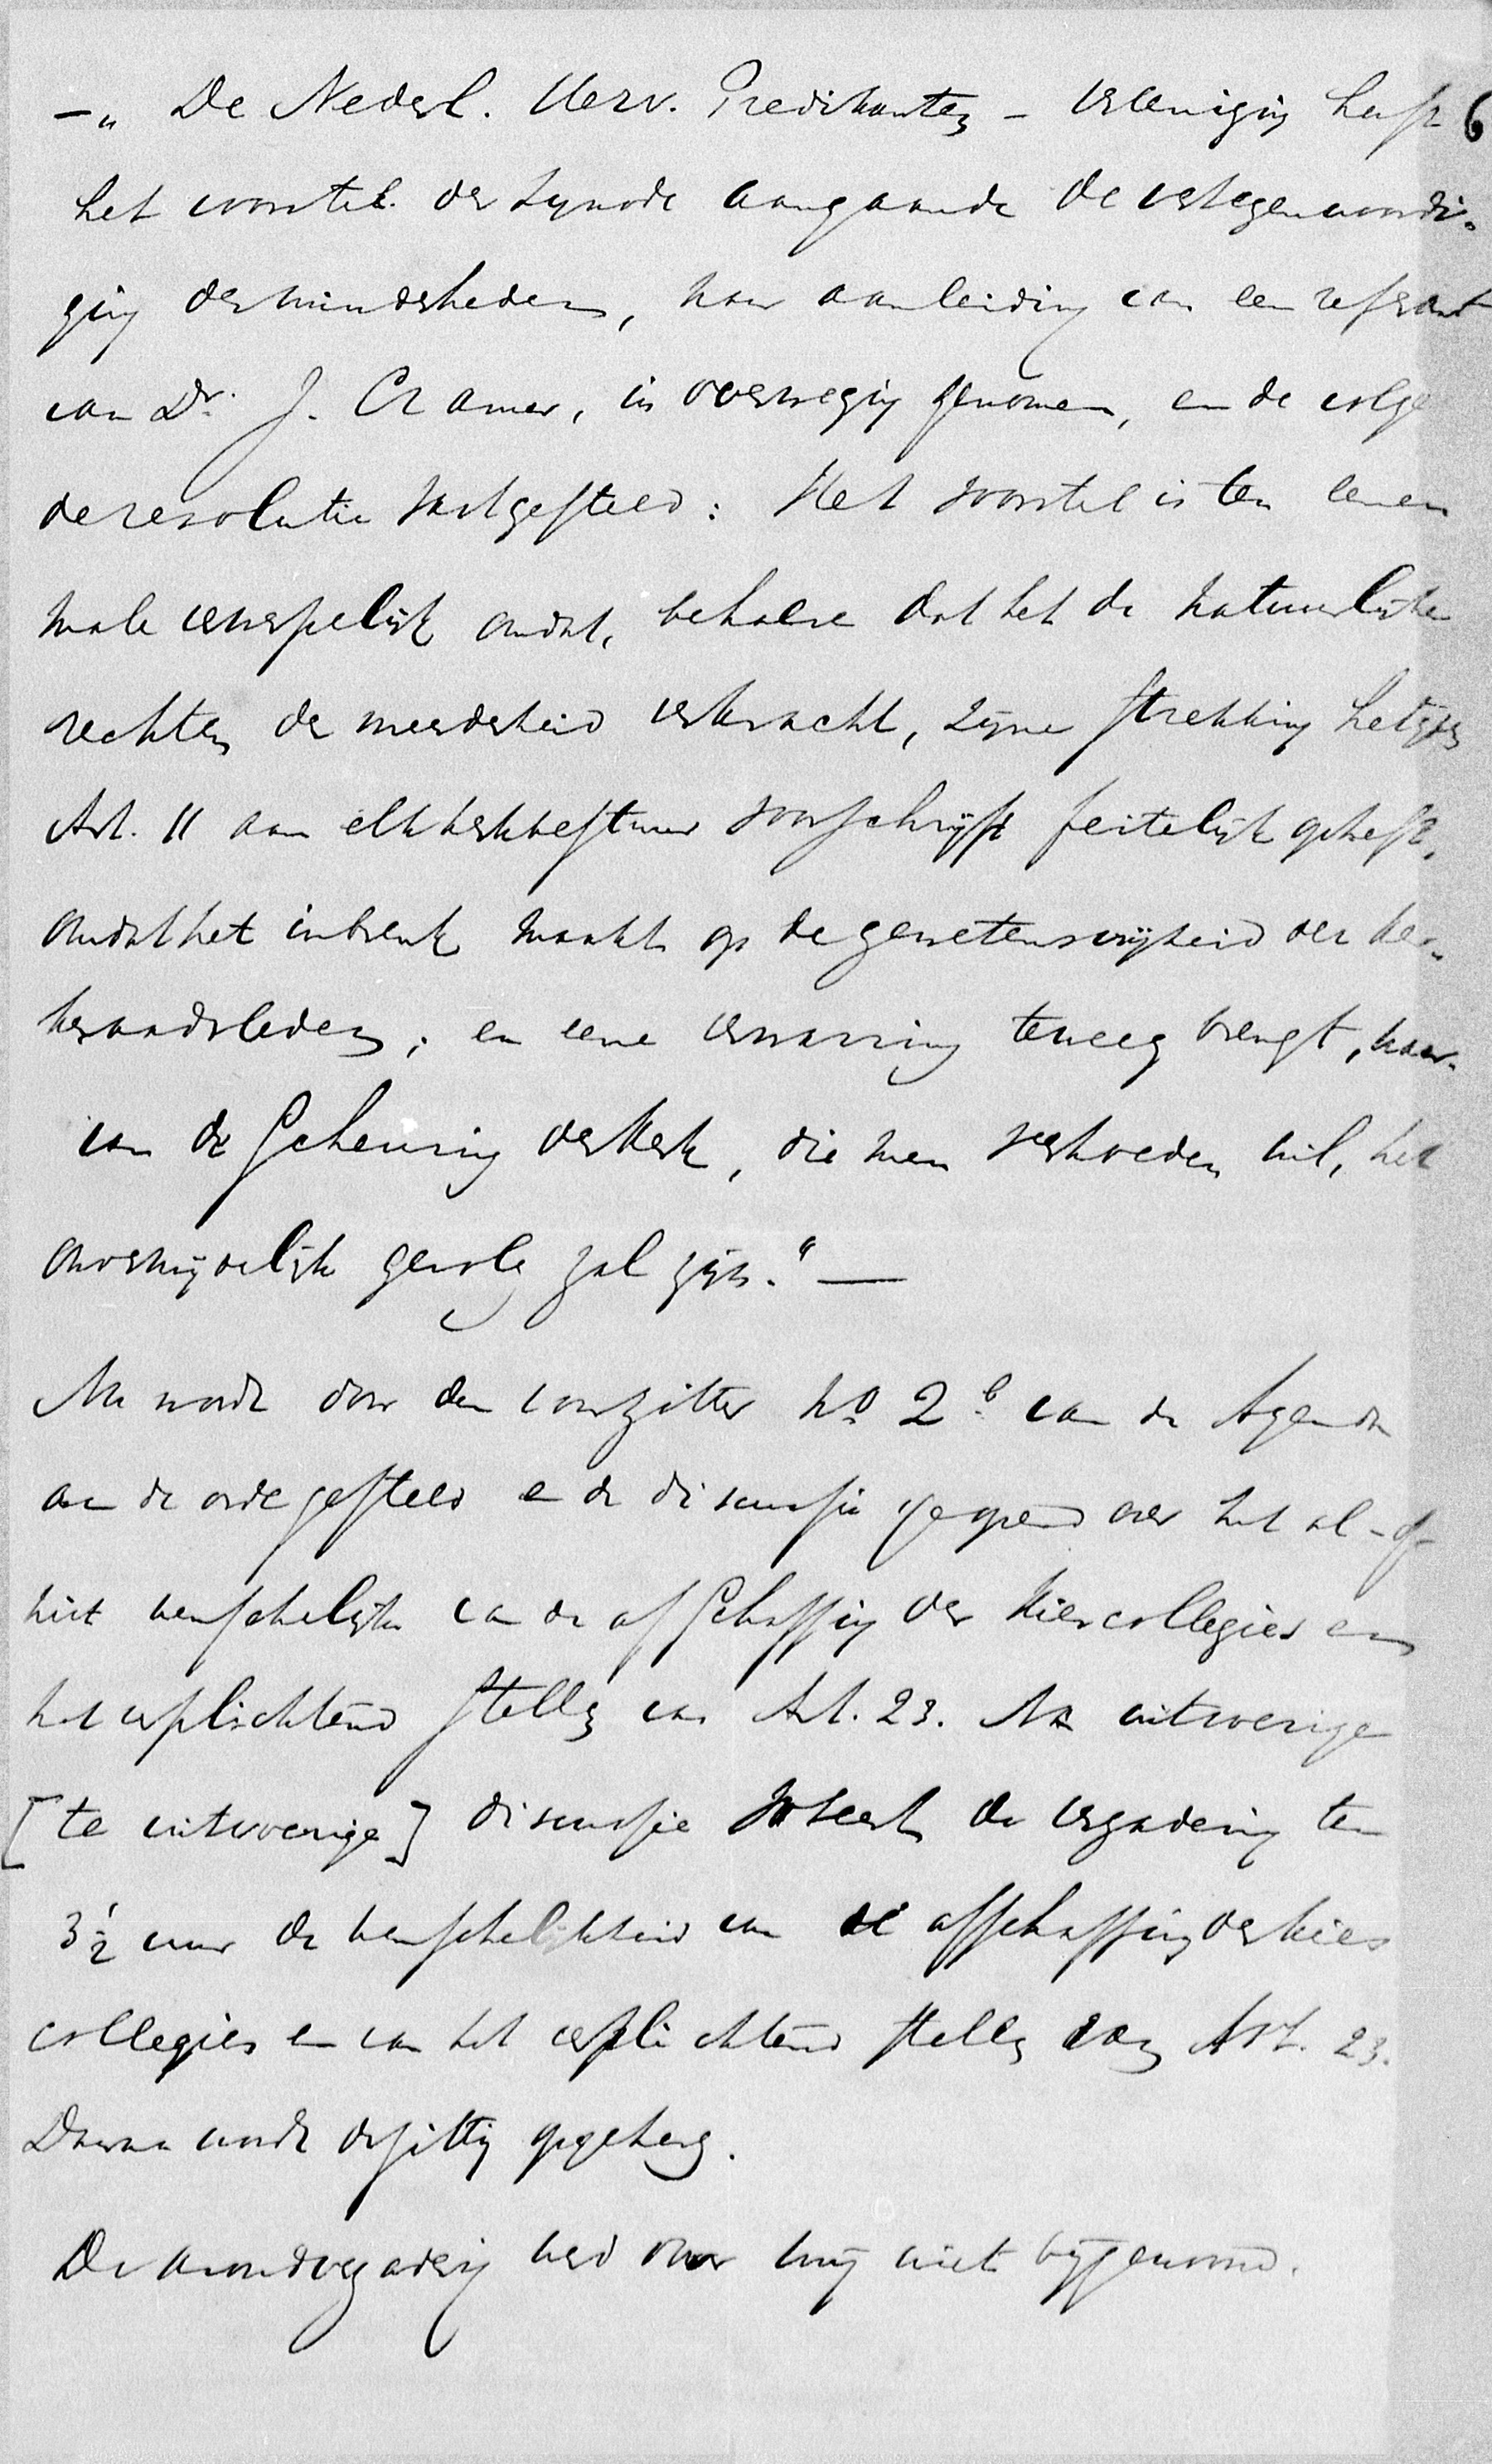 —„ De Nederl. Herv. Predikanten – vereeniging heeft 6
het voorstel der Synode aangaande de vertegenwoordi-
ging der minderheden, naar aanleiding van een referaat
van Dr. J. Cramer, in overweging genomen, en de volgen
de resolutie vastgesteld: Het voorstel is ten eenen
male verwerpelijk omdat, behalve dat het de natuurlijke
rechten der meerderheid verkracht, zijne strekking hetgeen
Art. 11 aan elk kerkbestuur voorschrijft feitelijk opheft,
omdat het inbreuk maakt op de gewetensvrijheid der ker-
keraadsleden; en eene verwarring teweeg brengt, waar-
van de scheuring der Kerk, die men verhoeden wil, het
onvermijdelijk gevolg zal zijn." —
Nu wordt door den voorzitter No 2b van de Agenda
aan de orde gesteld en de discussie geopend over het al-of-
niet wenschelijke van de afschaffing der Kiescollegies en
het verplichtend stellen van Art. 23. Na uitvoerige
[te uitvoerige] discussie voteert de vergadering ten
3½ uur de wenschelijkheid van de afschaffing der kies
collegies en van het verplichtend stellen van Art. 23.
Daarna wordt de zitting opgeheven.
De avondvergadering werd door mij niet bijgewoond.